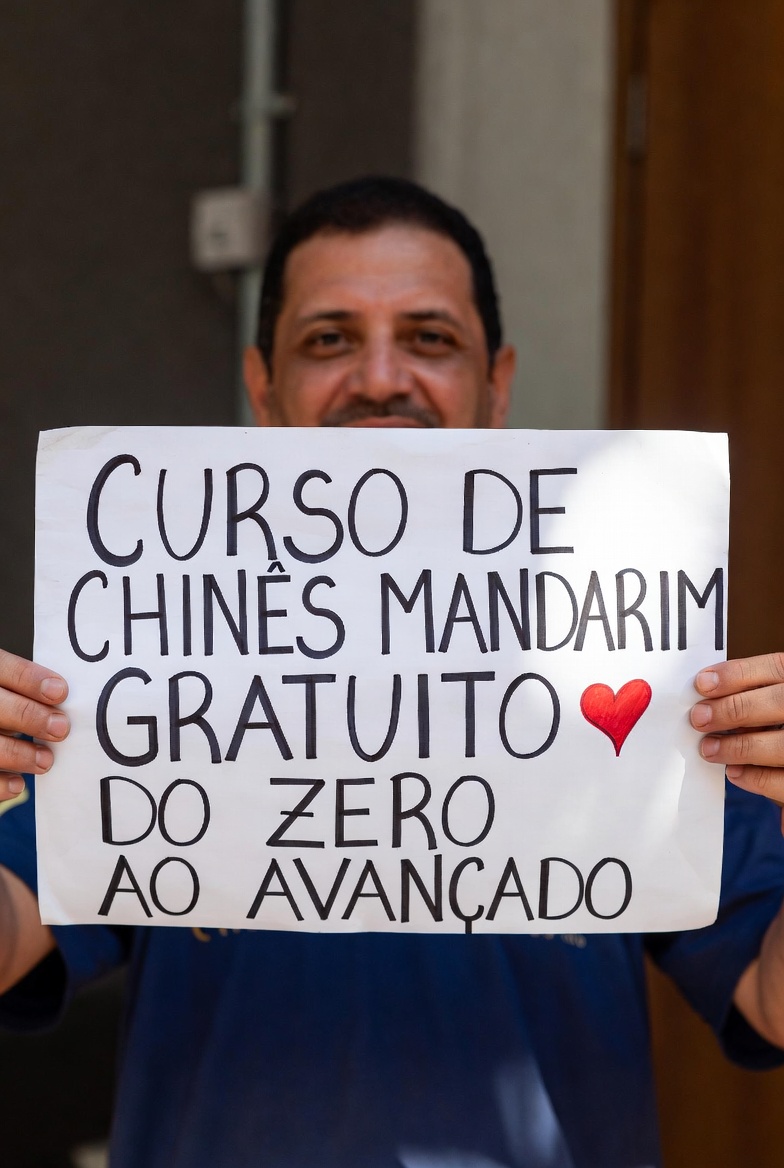 CURSO DE
CHINÊS MANDARIM
GRATUITO ❤
DO ZERO
AO AVANÇADO